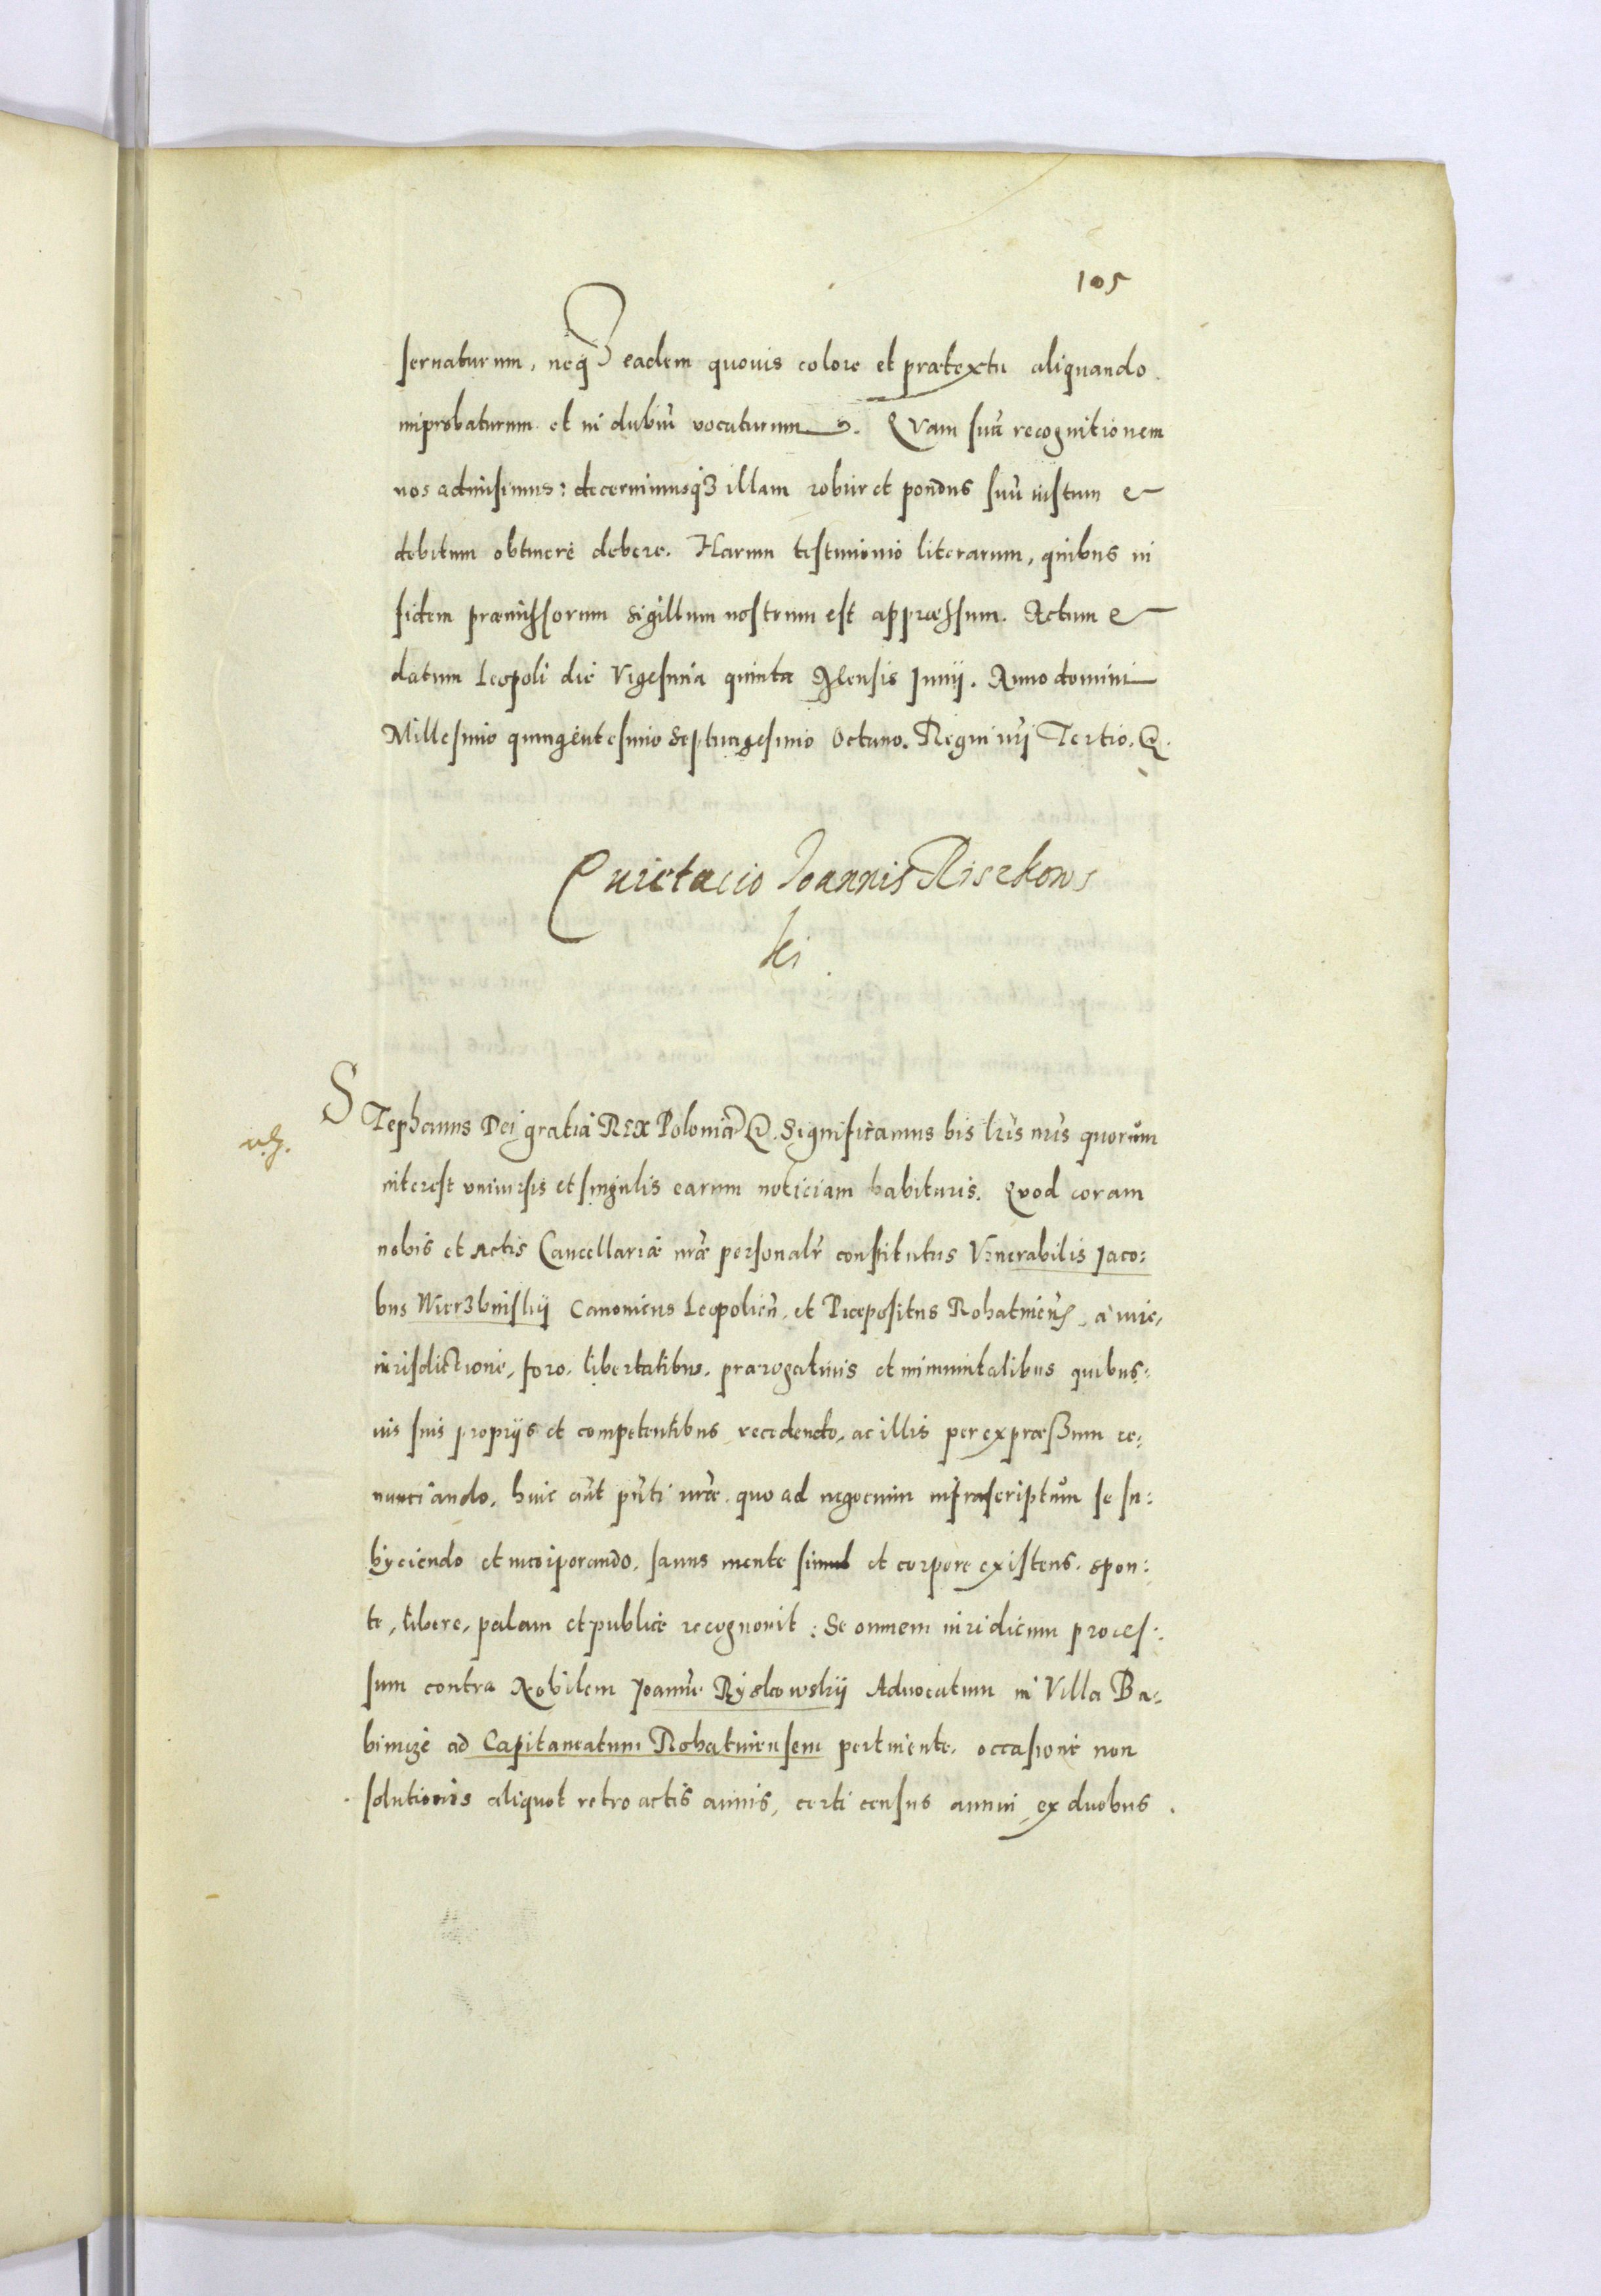 105
seruaturum, neq3 eadem quouis colore et prætextu aliquando
improbaturum et in dubiũ vocaturum. Quam suã recognitionem
nos admisimus: decernimusq3 illam robur et pondus suũ iustum &
debitum obtinere debere. Harum testimonio literarum, quibus in
fidem præmissorum sigillum nostrum est appræssum. Actum &
datum Leopoli die Vigesima quinta Mensis Junij. Anno domini
Millesimo quingentesimo Septuagesimo Octauo. Regni nrĩ Tertio. &.
Quietacio Joannis Riszkows
ki
STephanus Dei gratia REX Poloniæ &. Significamus his lrĩs nrĩs quorum
interest vniuersis et singulis earum noticiam habituris. Quod coram
nobis et Actis Cancellariæ nrãe personalr̃ constitutus Venerabilis Jaco:
bus Wierzbniskij Canonicus Leopolieñ. et Præpositus Rohatinieñs, a iure,
iurisdictione, foro. libertatibus. prærogatiuis et immunitatibus quibus:
uis suis proprijs et competentibus recedendo, ac illis per expræssum re:
nunciando, huic aũt pñti nrãe. quo ad negocium infrascriptum se su:
byciendo et incorporando. sanus mente simul et corpore existens. spon:
te, libere, palam et publice recognouit: Se omnem iuridicum proces:
sum contra Nobilem Joannẽ Ryskowskij Aduocatum in Villa Ba:
bincze ad Capitaneatum Rohatinensem pertinente, occasione non
solutionis aliquot retro actis annis, certi census annui ex duobus